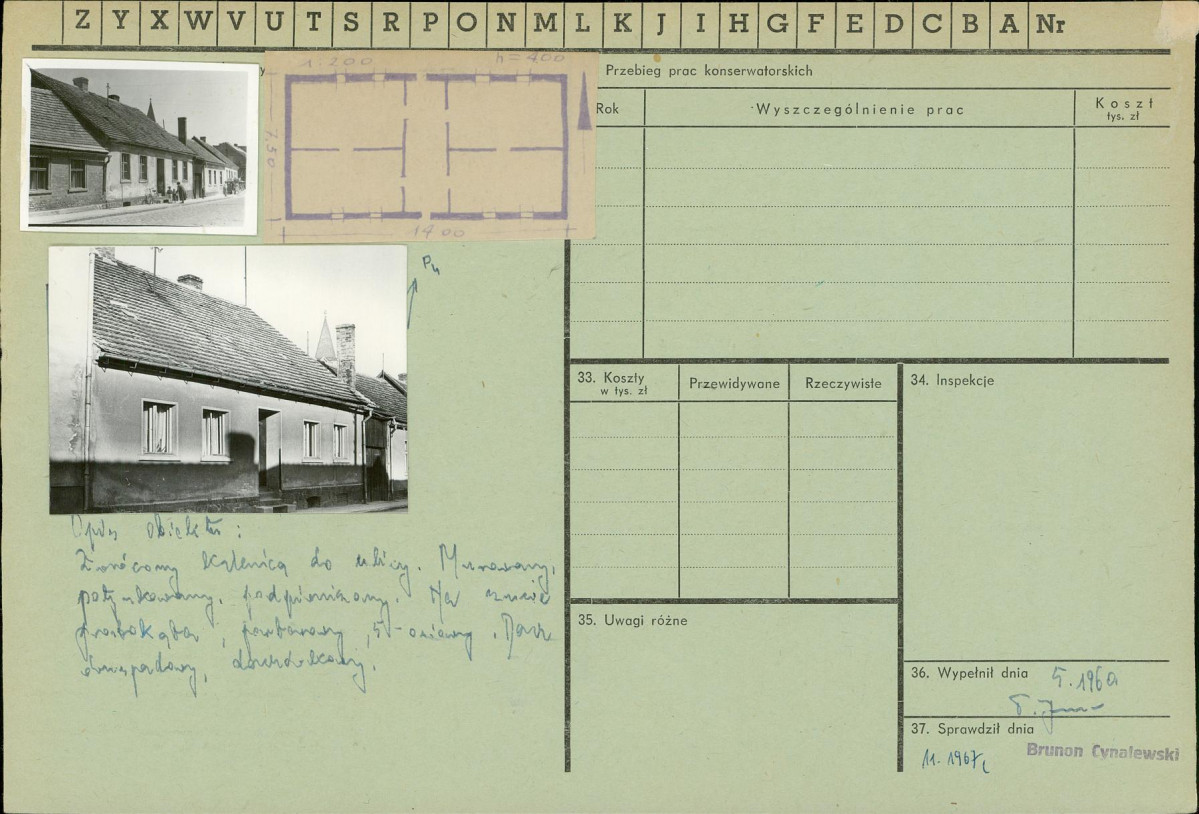 Z Y X W V U T S R P O N M L K J I H G F E D C B A Nr
1:200 h=400
7.50
1400
Pn
Opis obiektu:
Zwrócony kalenicą do ulicy. Murowany,
potynkowany, podpiwniczony. Na rzucie
prostokąta, parterowy, 5-osiowy. Dach
dwuspadowy, dachówkowy.
Przebieg prac konserwatorskich
Rok Wyszczególnienie prac Koszt
tys. zł
33. Koszty
w tys. zł
Przewidywane Rzeczywiste
34. Inspekcje
35. Uwagi różne
36. Wypełnił dnia 5.1960
37. Sprawdził dnia
11.1967
Brunon Cynalewski